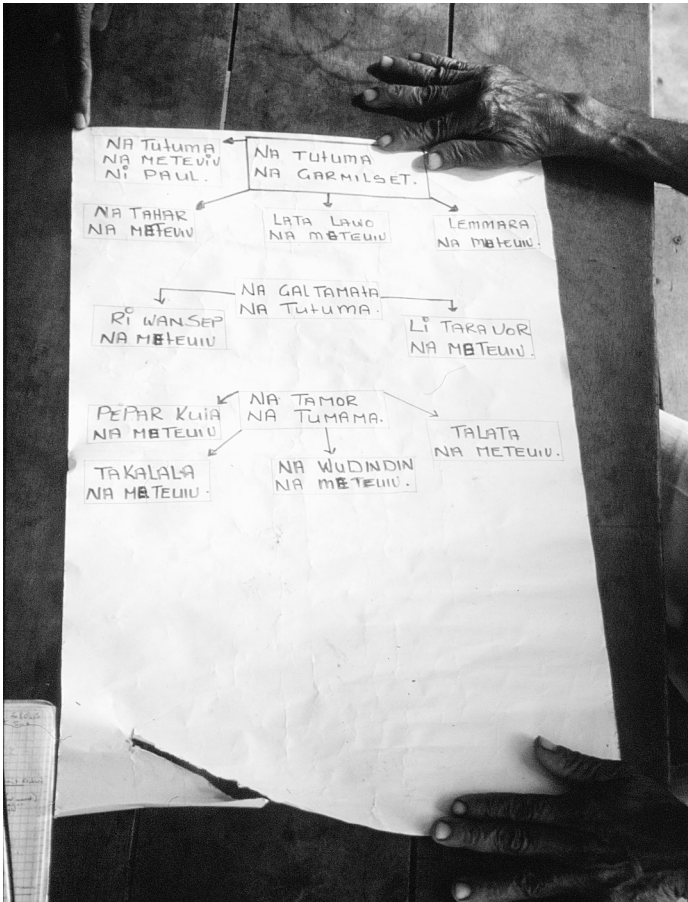 NA TUTUMA
NA METEUIU
NI PAUL.
NA TUTUMA
NA GARMILSET.
NA TAHAR
NA METEUIU
LATA LAWO
NA METEUIU
LEMMARA
NA METEUIU.
NA GALTAMATA
NA TUTUMA.
RI WANSEP
NA METEUIU
LI TARAVOR
NA METEUIU.
NA TAMOR
NA TUMAMA.
PEPAR KUIA
NA METEUIU
TALATA
NA METEUIU.
TAKALALA
NA METEUIU.
NA WUDINDIN
NA METEUIU.